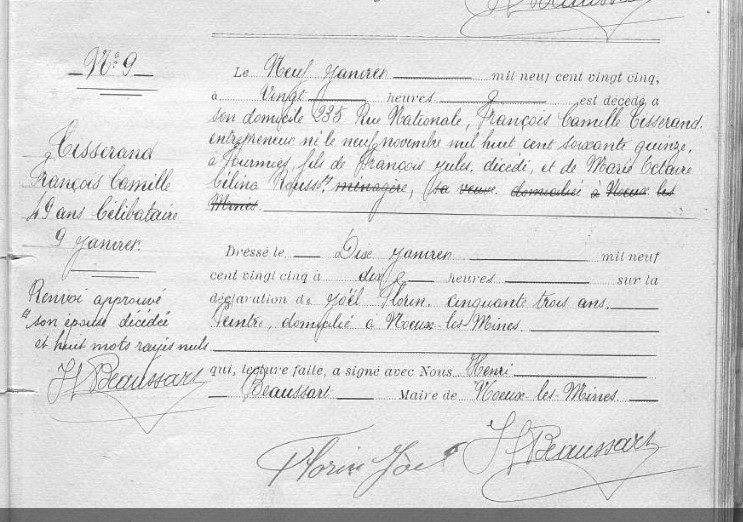 H Beaussart
N° 9
Tisserand
François Camille
49 ans Célibataire
9 Janvier
Renvoi approuvé
son épouse décédée
et huit mots rayés nuls
H Beaussart
Le Neuf Janvier mil neuf cent vingt cinq,
à Vingt heures est décédé à
son domicile 235 Rue Nationale, François Camille Tisserand
entrepreneur né le neuf novembre mil huit cent soixante quinze,
à Fourmies, fils de François Jules, décédé, et de Marie Octavie
Célina Rousse, ménagère, sa veuve domiciliée à Noeux les
Mines.
Dressé le Dix Janvier mil neuf
cent vingt cinq à dix heures sur la
déclaration de Joël Florin, cinquante trois ans,
Peintre, domicilié à Noeux-les-Mines.
qui, lecture faite, a signé avec Nous Henri
Beaussart Maire de Noeux-les-Mines
Florin Joël H Beaussart